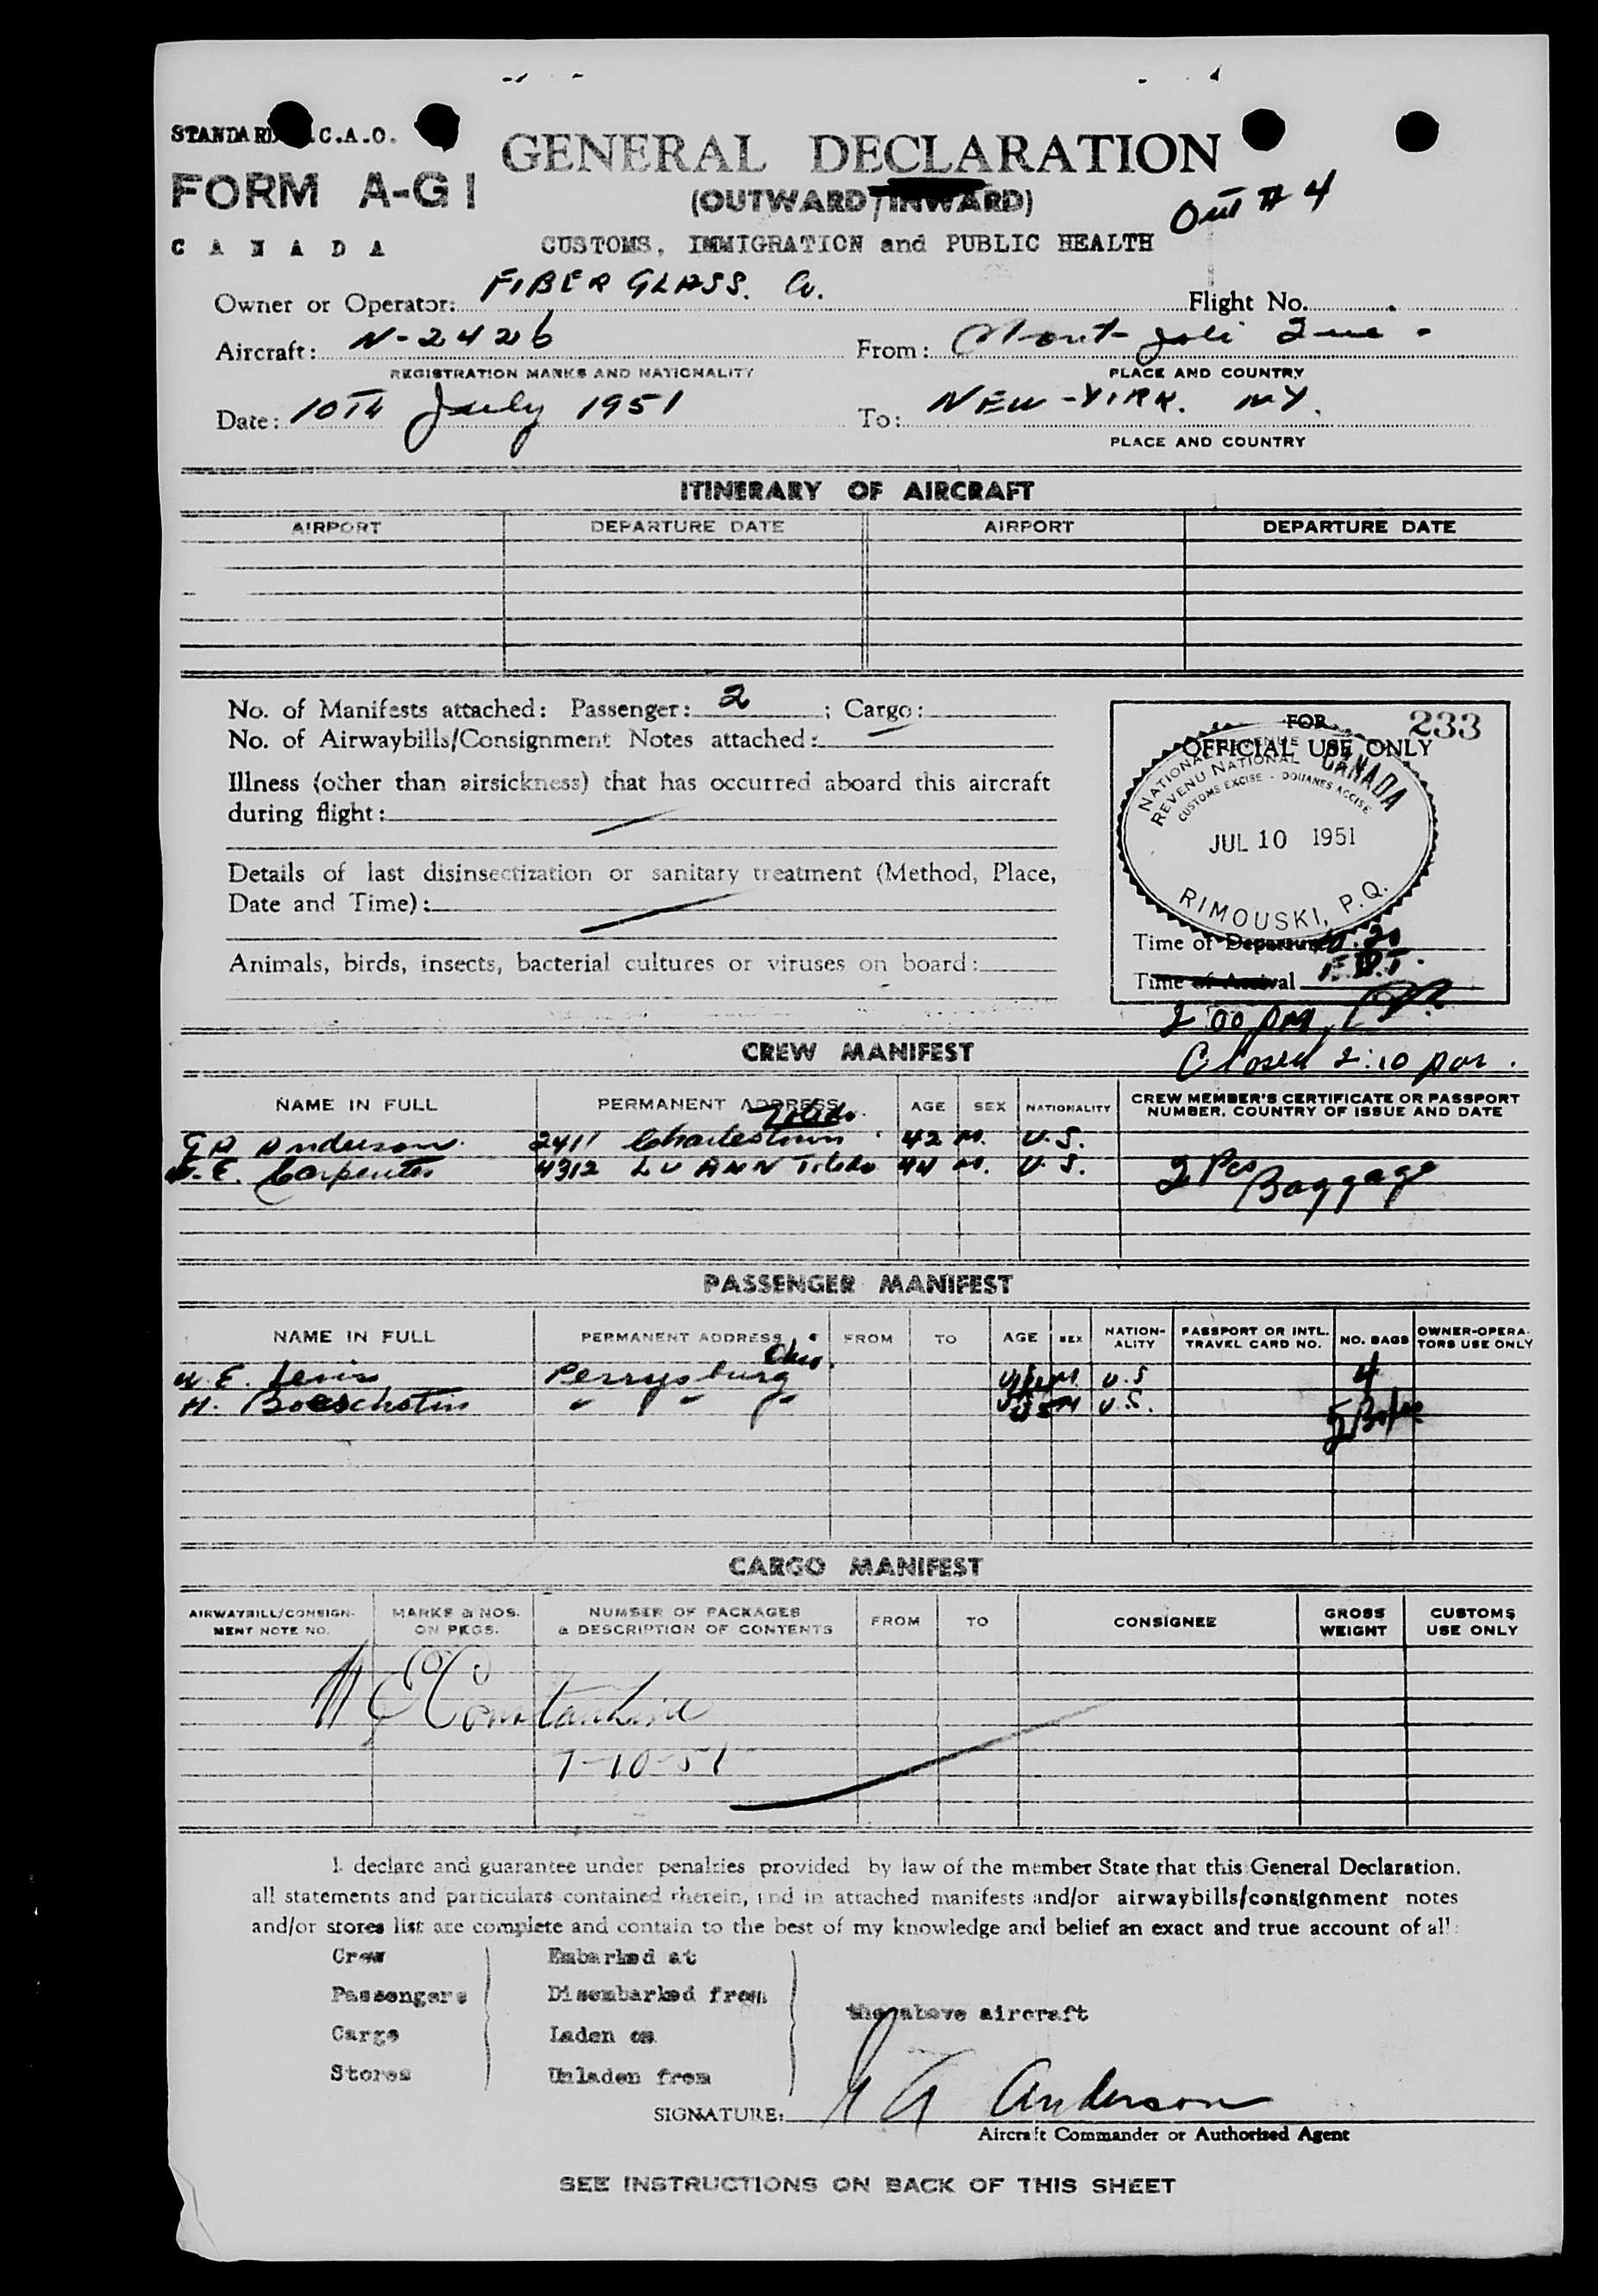 STANDARD I.C.A.O.
FORM A-G1
CANADA
GENERAL DECLARATION
(OUTWARD/INWARD)
CUSTOMS, IMMIGRATION and PUBLIC HEALTH
Out # 4
Owner or Operator: FIBER GLASS. Co. Flight No.
Aircraft: N-2426 From: Mont Joli Que.
REGISTRATION MARKS AND NATIONALITY PLACE AND COUNTRY
Date: 10TH July 1951 To: NEW-YORK. NY.
PLACE AND COUNTRY
ITINERARY OF AIRCRAFT
AIRPORT DEPARTURE DATE AIRPORT DEPARTURE DATE
No. of Manifests attached: Passenger: 2 ; Cargo:
No. of Airwaybills/Consignment Notes attached:
Illness (other than airsickness) that has occurred aboard this aircraft
during flight:
Details of last disinsectization or sanitary treatment (Method, Place,
Date and Time):
Animals, birds, insects, bacterial cultures or viruses on board:
FOR 233
OFFICIAL USE ONLY
NATIONAL REVENUE CANADA
REVENU NATIONAL
CUSTOMS EXCISE - DOUANES ACCISE
JUL 10 1951
RIMOUSKI, P.Q.
Time of Departure
Time of Arrival E.D.T.
2:00 PM
Closed 2:10 pm.
CREW MANIFEST
NAME IN FULL PERMANENT ADDRESS AGE SEX NATIONALITY CREW MEMBER'S CERTIFICATE OR PASSPORT
NUMBER, COUNTRY OF ISSUE AND DATE
Toledo.
G A Anderson. 2411 Charlestown 42 M. U.S.
E. Carpenter 4312 LU ANN Toledo 44 M. U.S. 2 Pcs Baggage
PASSENGER MANIFEST
NAME IN FULL PERMANENT ADDRESS FROM TO AGE SEX NATION-
ALITY PASSPORT OR INTL.
TRAVEL CARD NO. NO. BAGS OWNER-OPERA-
TORS USE ONLY
Ohio.
W. E. Levis Perrysburg M U.S 4
H. Boeschotin " " " M U.S.
CARGO MANIFEST
AIRWAYBILL/CONSIGN-
MENT NOTE NO. MARKS & NOS.
ON PKGS. NUMBER OF PACKAGES
& DESCRIPTION OF CONTENTS FROM TO CONSIGNEE GROSS
WEIGHT CUSTOMS
USE ONLY
Constantine
7-10-51
I declare and guarantee under penalties provided by law of the member State that this General Declaration.
all statements and particulars contained therein, and in attached manifests and/or airwaybills/consignment notes
and/or stores list are complete and contain to the best of my knowledge and belief an exact and true account of all:
Crew Embarked at
Passengers Disembarked from
the above aircraft
Cargo Laden on
Stores Unladen from
SIGNATURE: G A Anderson
Aircraft Commander or Authorized Agent
SEE INSTRUCTIONS ON BACK OF THIS SHEET